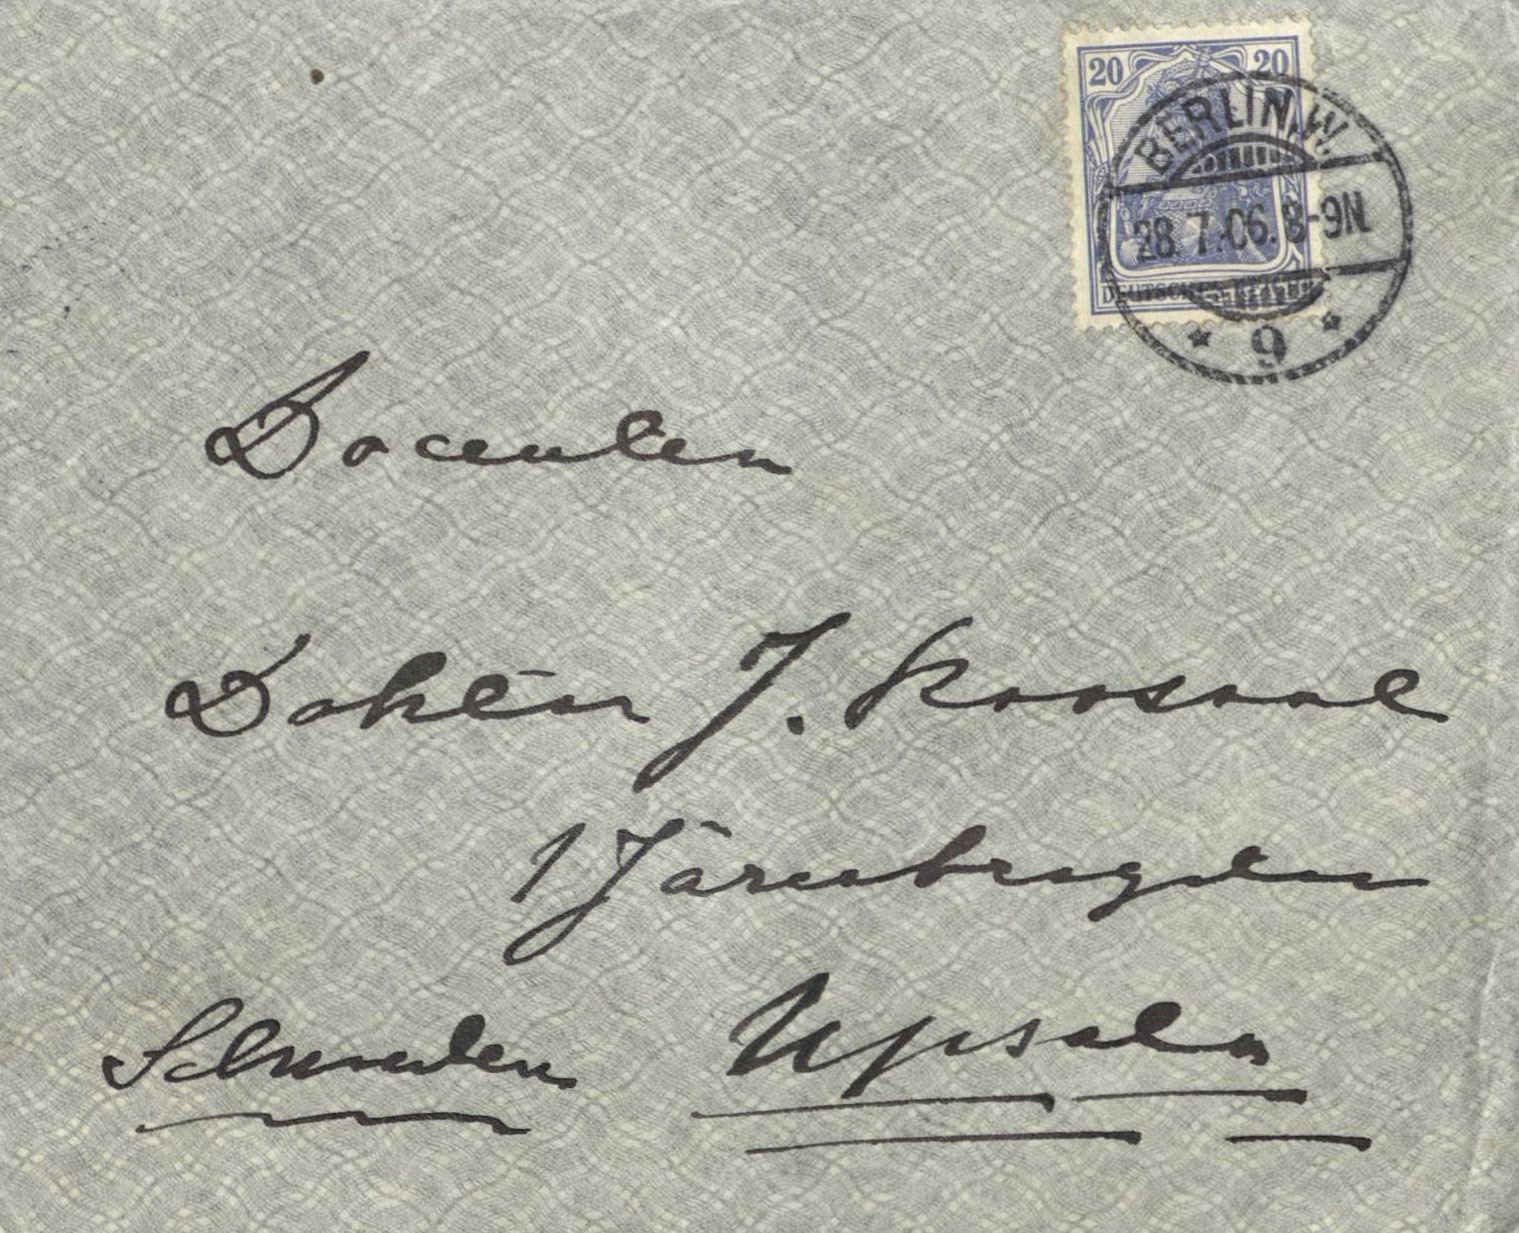 20 20
DEUTSCHES REICH
BERLIN.W.
28.7.06.8-9N.
* 9 *
Docenten
Doktor J. Roosval
1 Järnbrogatan
Schweden Upsala